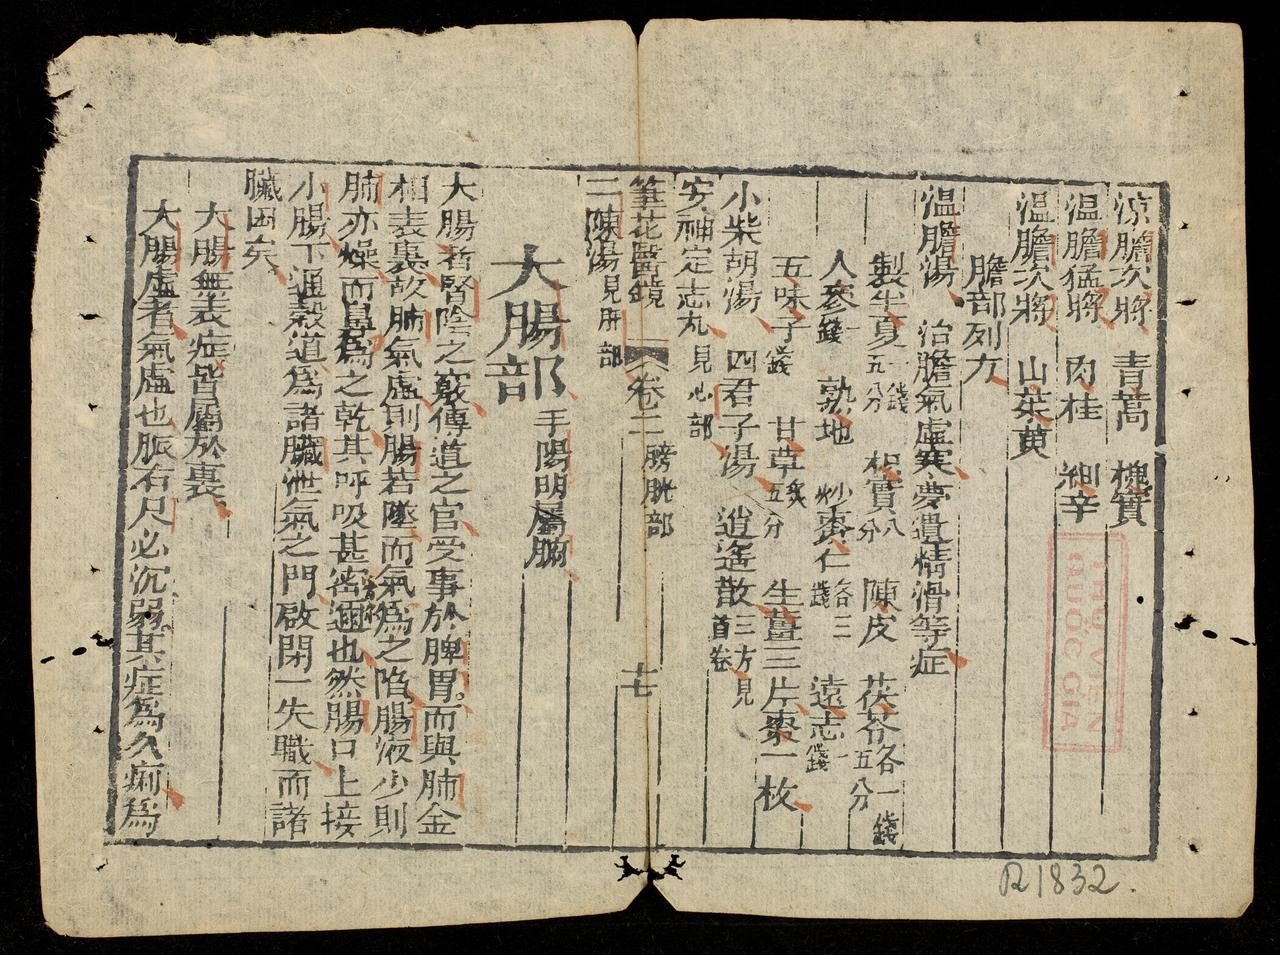 涼膽次將　青蒿　槐實
溫膽猛將　肉桂　細辛
溫膽次將　山茱萸
膽部列方
溫膽湯　治膽氣虛寒夢遺精滑等症
製半夏一錢五分　枳實八分　陳皮　茯苓各一錢五分
人參一錢　熟地　炒棗仁各二錢　遠志一錢
五味子錢　甘草炙五分　生薑三片棗一枚
小柴胡湯　四君子湯　逍遙散三方見首卷
安神定志丸見心部
筆花醫鏡　卷二　膀胱部　十七
二陳湯見肝部
大腸部　手陽明屬腑
大腸者腎陰之竅傳道之官受事於脾胃而與肺金
相表裏故肺氣虛則腸若墜而氣為之陷腸液少則
肺亦燥而鼻為之乾其呼吸甚密邇也然腸口上接
小腸下通穀道為諸臟泄氣之門啟閉一失職而諸
臟困矣
大腸無表症皆屬於裏
大腸虛者氣虛也脈右尺必沉弱其症為久痢為
THƯ VIỆN
QUỐC GIA
R1832.